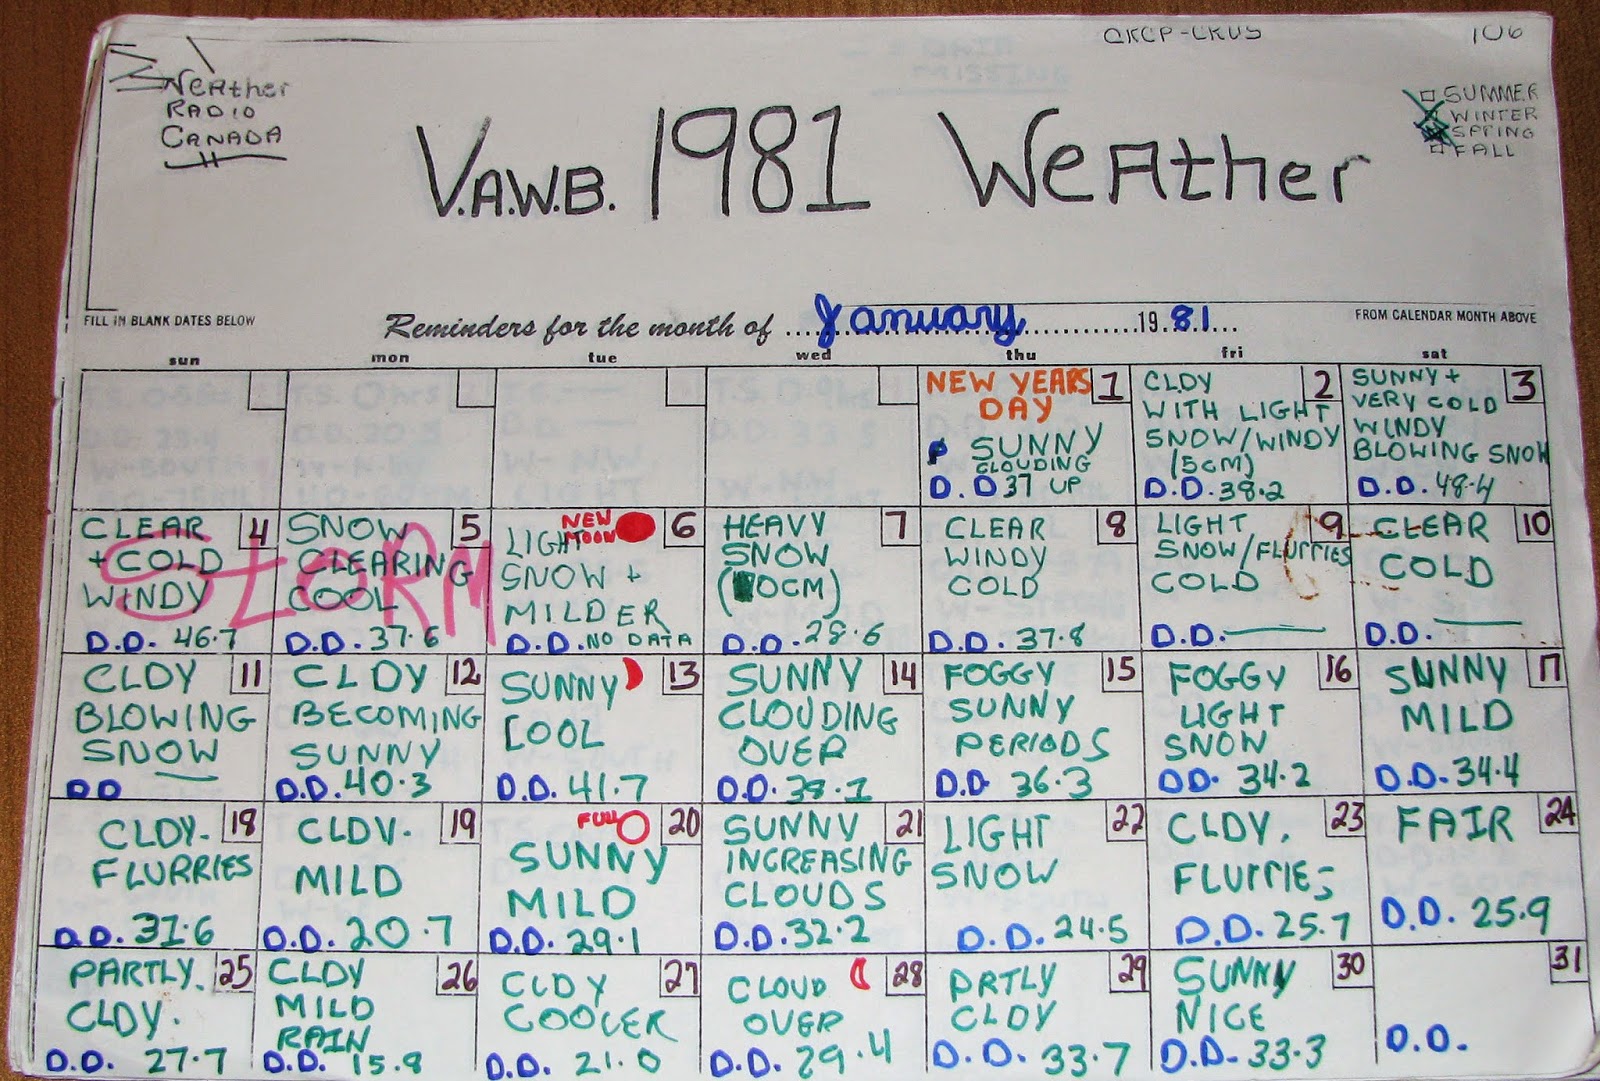 CKCP-CKUS 106
Weather
RADIO
CANADA
SUMMER
WINTER
SPRING
FALL
V.A.W.B. 1981 Weather
FILL IN BLANK DATES BELOW
Reminders for the month of January 1981
FROM CALENDAR MONTH ABOVE
sun mon tue wed thu fri sat
NEW YEARS 1
DAY
SUNNY
CLOUDING
D.D 37 UP
CLDY 2
WITH LIGHT
SNOW/WINDY
(5CM)
D.D. 38.2
SUNNY + 3
VERY COLD
WINDY
BLOWING SNOW
D.D. 48.4
CLEAR 4
+ COLD
WINDY
D.D. 46.7
STORM
SNOW 5
CLEARING
COOL
D.D. 37.6
NEW MOON 6
LIGHT
SNOW +
MILDER
D.D. NO DATA
HEAVY 7
SNOW
D.D. 28.6
CLEAR 8
WINDY
COLD
D.D. 37.8
LIGHT 9
SNOW/FLURRIES
COLD
D.D.
CLEAR 10
COLD
D.D.
CLDY 11
BLOWING
SNOW
DD
CLDY 12
BECOMING
SUNNY
D.D. 40.3
SUNNY 13
COOL
D.D. 41.7
SUNNY 14
CLOUDING
OVER
D.D. 38.1
FOGGY 15
SUNNY
PERIODS
D.D. 36.3
FOGGY 16
LIGHT
SNOW
DD. 34.2
SUNNY 17
MILD
D.D. 34.4
CLDY. 18
FLURRIES
D.D. 31.6
CLDY. 19
MILD
D.D. 20.7
FULL 20
SUNNY
MILD
D.D. 29.1
SUNNY 21
INCREASING
CLOUDS
D.D. 32.2
LIGHT 22
SNOW
D.D. 24.5
CLDY. 23
FLURRIES
D.D. 25.7
FAIR 24
D.D. 25.9
PARTLY. 25
CLDY.
D.D. 27.7
CLDY 26
MILD
RAIN
D.D. 15.8
CLDY 27
COOLER
D.D. 21.0
CLOUD 28
OVER
D.D. 29.4
PRTLY 29
CLDY
D.D. 33.7
SUNNY 30
NICE
D.D. 33.3
31
D.D.